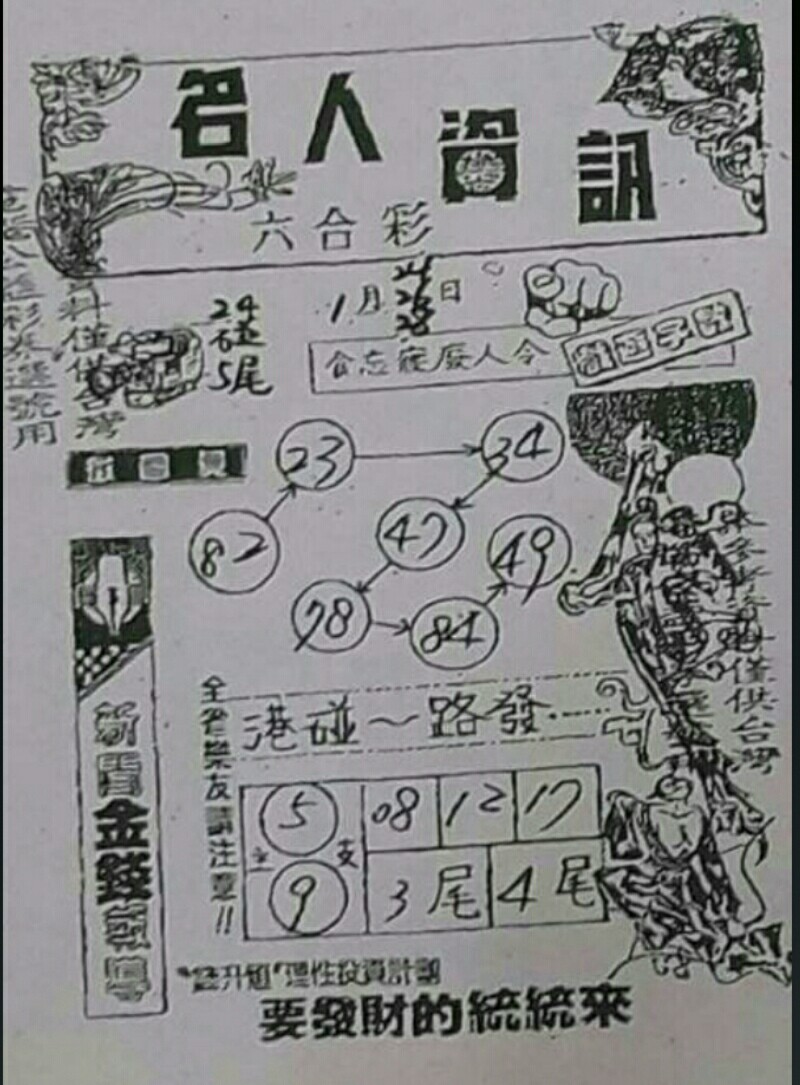 名人資訊
六合彩
24
碰
5尾
1月24
26
28日
食忘寢廢人令
23
34
82
47
49
78
84
全省樂友請注意!!
港碰~路發
5
9
主
支
08
12
17
3尾
4尾
金錢
理性投資計劃
要發財的統統來
料僅供台灣
彩券選號用
料僅供台灣